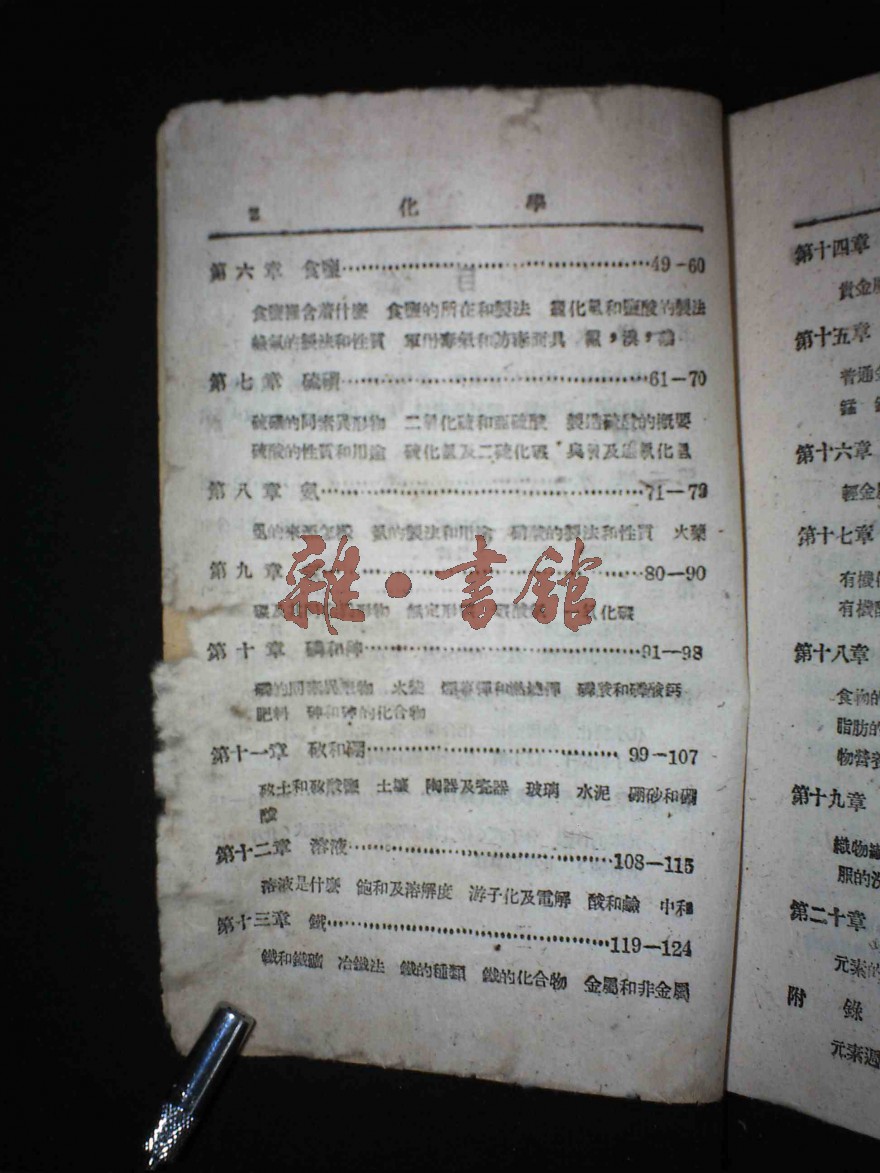 2 化 學
第六章 食鹽 49-60
食鹽裡含着什麼 食鹽的所在和製法 氯化氫和鹽酸的製法
氯氣的製法和性質 軍用毒氣和防毒面具
第七章 硫磺 61-70
硫磺的同素異形物 二氧化硫和亞硫酸 製造硫酸的概要
硫酸的性質和用途 硫化氫及二硫化碳
第八章 氮 71-79
氮的製法和用途 硝酸的製法和性質 火藥
第九章 80-90
一氧化碳
第十章 磷和砷 91-98
磷的同素異形物 火柴 煙幕彈和燃燒彈 磷酸和磷酸鈣
肥料 砷和砷的化合物
第十一章 矽和硼 99-107
矽土和矽酸鹽 土壤 陶器及瓷器 玻璃 水泥 硼砂和硼
酸
第十二章 溶液 108-115
溶液是什麼 飽和及溶解度 游子化及電解 酸和鹼 中和
第十三章 鐵 119-124
鐵和鐵礦 冶鐵法 鐵的種類 鐵的化合物 金屬和非金屬
雜·書館
第十四章
貴金
第十五章
普通
錳
第十六章
輕金
第十七章
有機
有機
第十八章
食物的
脂肪的
物營養
第十九章
織物
服的洗
第二十章
元素的
附 錄
元素週